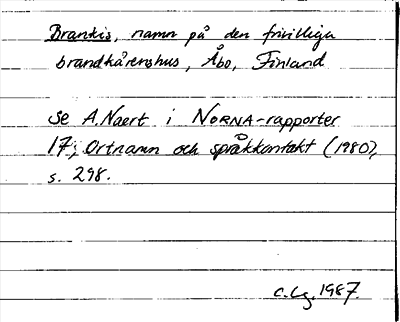 Brankis, namn på den frivilliga
brandkårens hus, Åbo, Finland
se A. Naert i NORNA-rapporter
17, Ortnamn och språkkontakt (1980),
s. 298.
C. Lg. 1987.